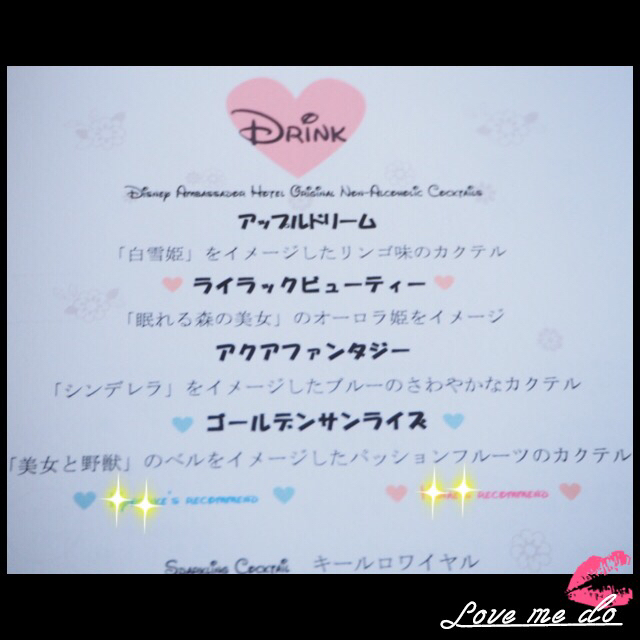 DRINK
DISNEY AMBASSADOR HOTEL ORIGINAL NON-ALCOHOLIC COCKTAILS
アップルドリーム
「白雪姫」をイメージしたリンゴ味のカクテル
ライラックビューティー
「眠れる森の美女」のオーロラ姫をイメージ
アクアファンタジー
「シンデレラ」をイメージしたブルーのさわやかなカクテル
ゴールデンサンライズ
「美女と野獣」のベルをイメージしたパッションフルーツのカクテル
RECOMMEND RECOMMEND
SPARKLING COCKTAIL キールロワイヤル
Love me do